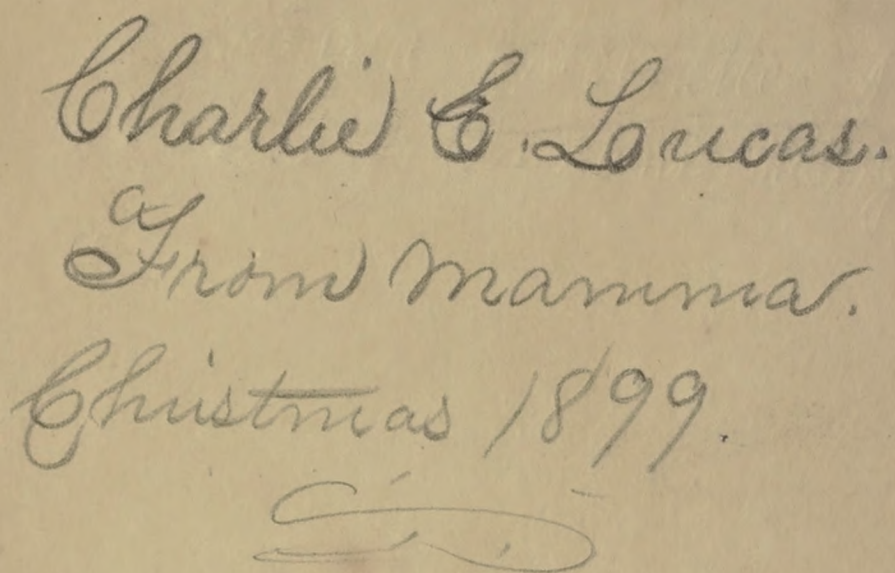 Charlie E. Lucas.
From Mamma.
Christmas 1899.